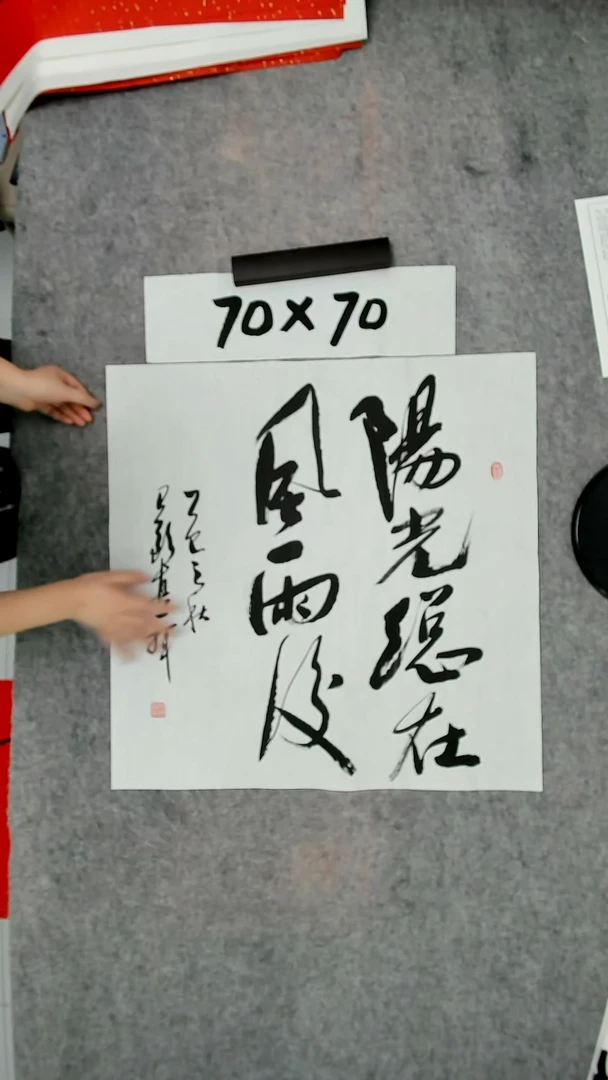 70×70
陽光總在
風雨後
乙巳之秋